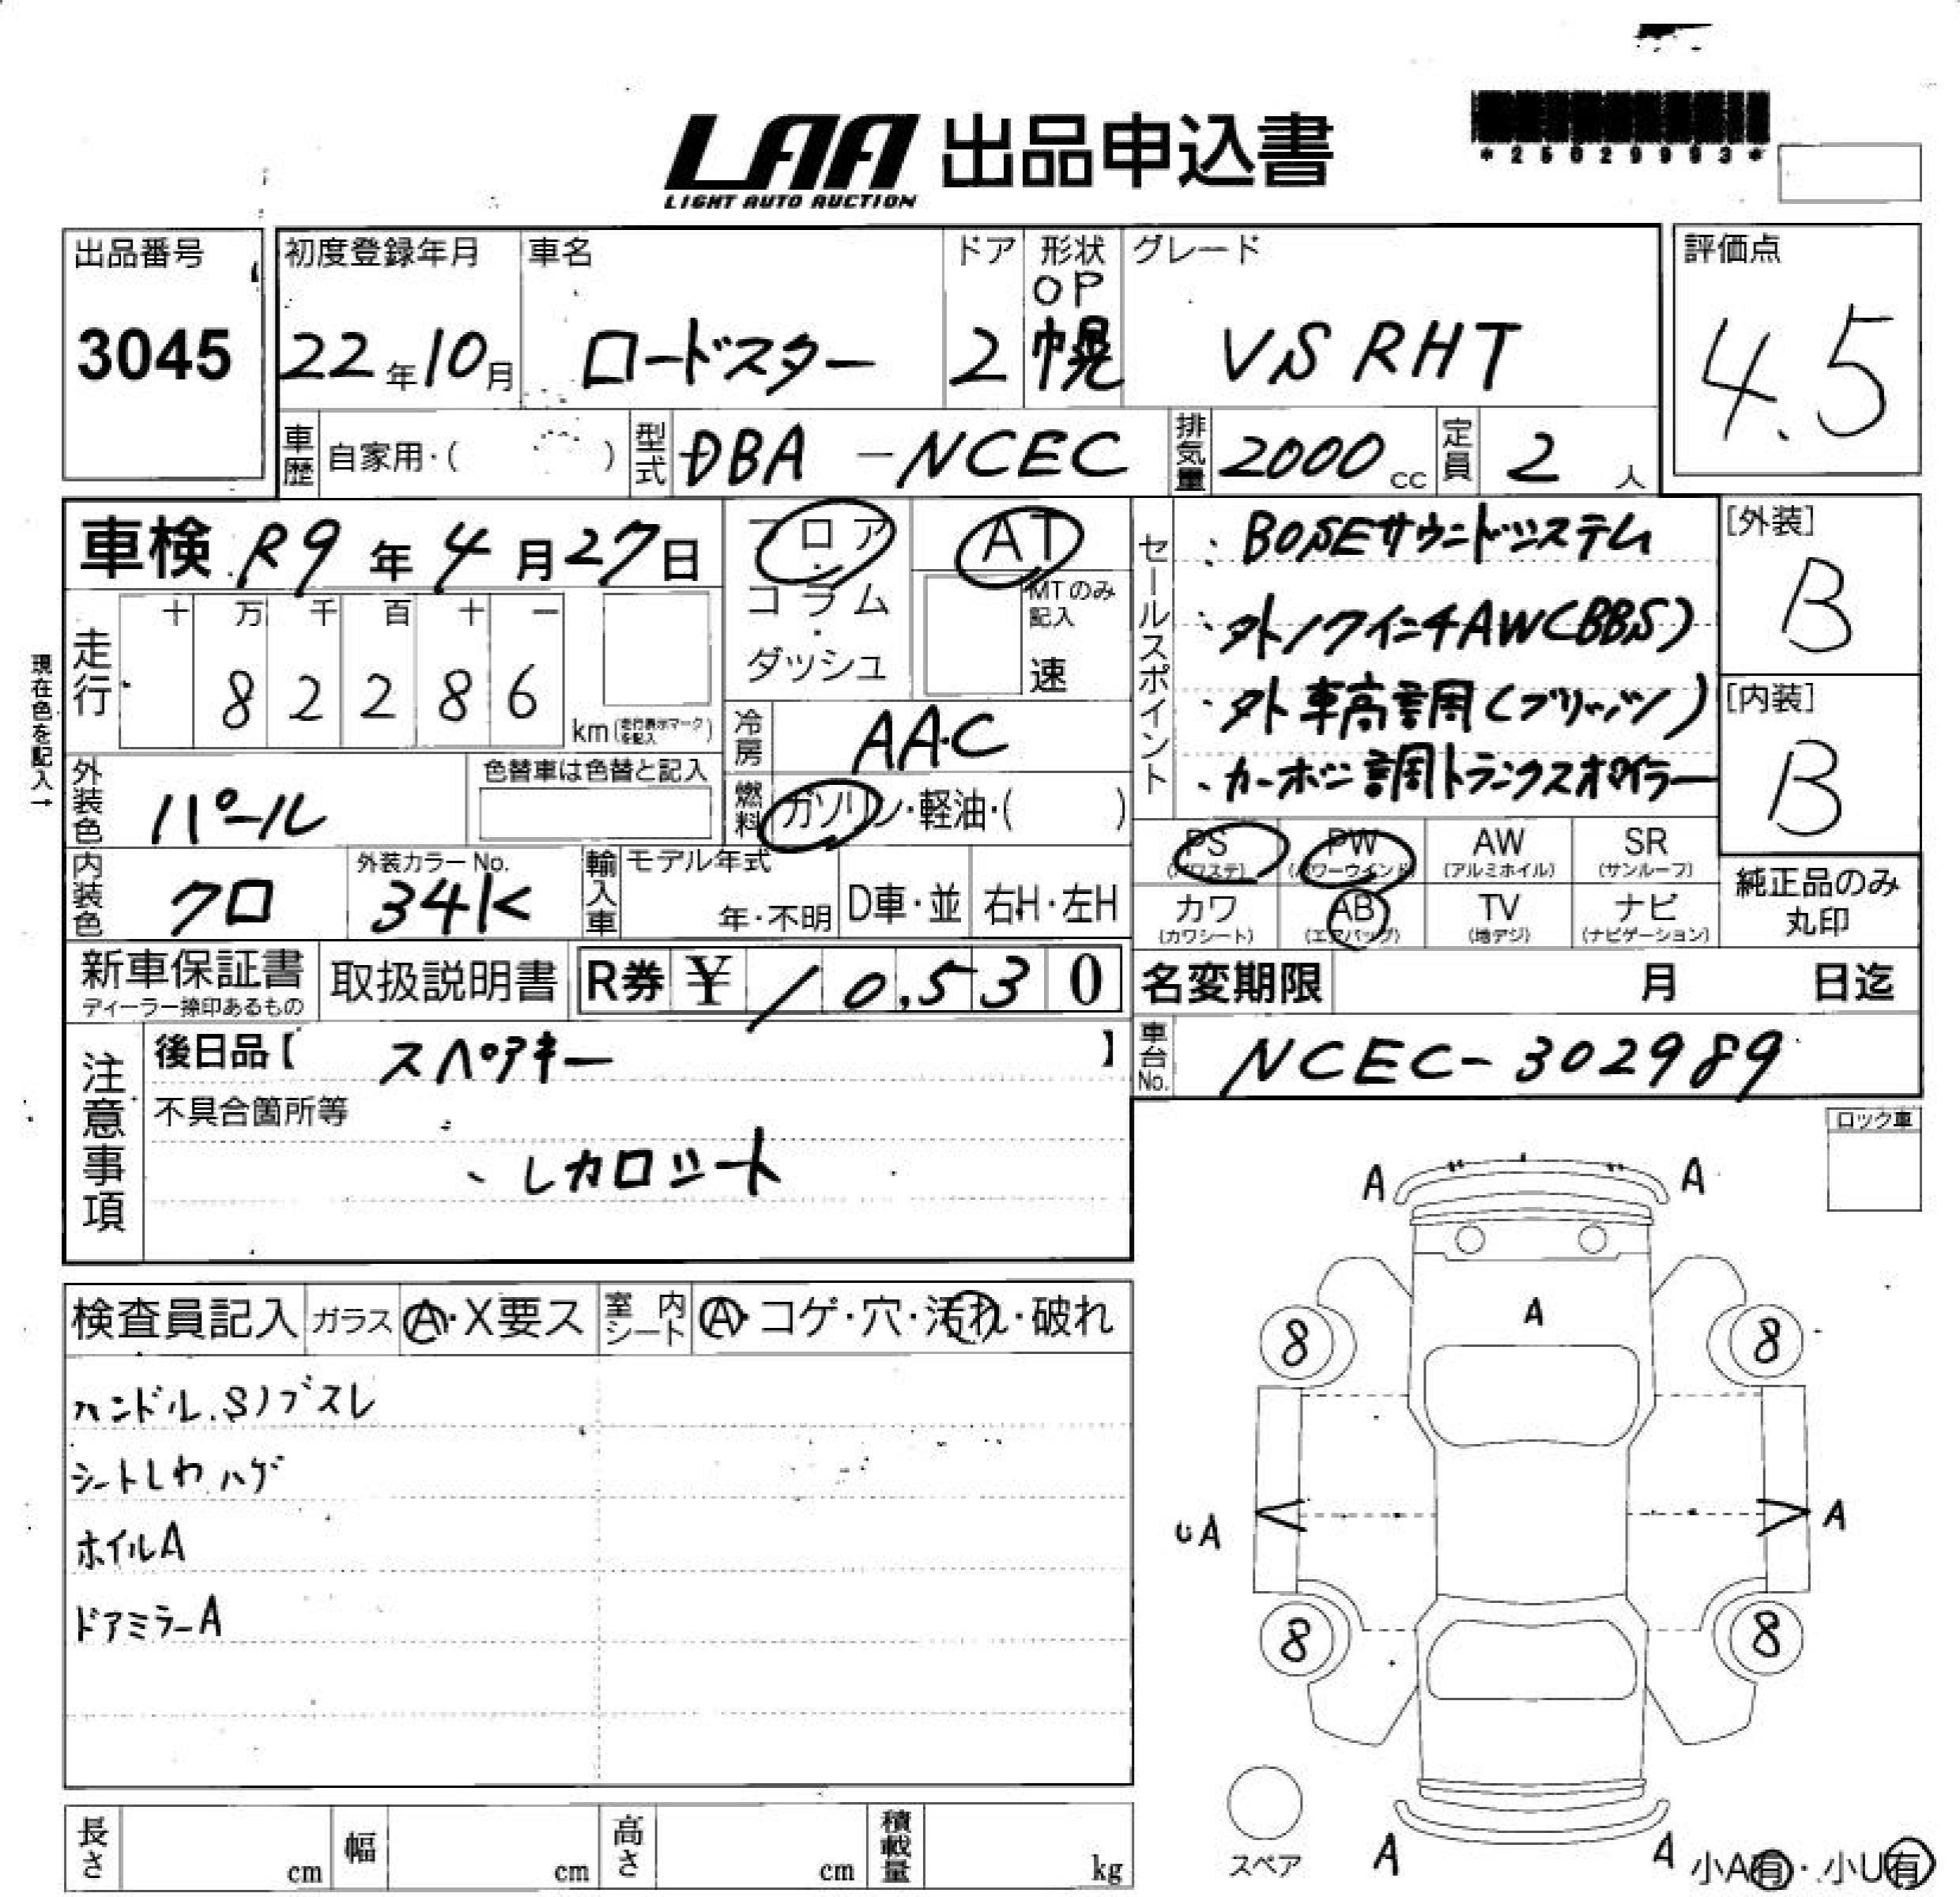 *25029993*
LAA 出品申込書
LIGHT AUTO AUCTION
出品番号
3045
初度登録年月
22年10月
車名
ロードスター
ドア
2
形状
OP
幌
グレード
VS RHT
評価点
4.5
車歴 自家用・( )
型式 DBA-NCEC
排気量 2000cc
定員 2人
車検 R9年4月27日
フロア・コラム・ダッシュ
AT
MTのみ記入
速
セールスポイント
・BOSEサウンドシステム
・外17インチAW(BBS)
・外車高調(ブリッツ)
・カーボン調トランクスポイラー
[外装]
B
[内装]
B
現在色を記入→
走行
十 万 千 百 十 一
8 2 2 8 6
km(走行表示マークを記入)
冷房 AAC
燃料 ガソリン・軽油・( )
外装色 パール
色替車は色替と記入
内装色 クロ
外装カラーNo.
34K
輸入車
モデル年式
年・不明
D車・並
右H・左H
PS (パワステ)
PW (パワーウインド)
AW (アルミホイル)
SR (サンルーフ)
カワ (カワシート)
AB (エアバッグ)
TV (地デジ)
ナビ (ナビゲーション)
純正品のみ
丸印
新車保証書
ディーラー捺印あるもの
取扱説明書
R券 ¥10,530
名変期限 月 日迄
車台No. NCEC-302989
注意事項
後日品【 スペアキー 】
不具合箇所等
、レカロシート
ロック車
検査員記入 ガラス A・X要ス 室内シート A・コゲ・穴・汚れ・破れ
ハンドル.Sノブスレ
シートしわ ハゲ
ホイルA
ドアミラーA
A A
A
8 8
A A
8 8
A A
スペア
小A有・小U有
長さ cm
幅 cm
高さ cm
積載量 kg